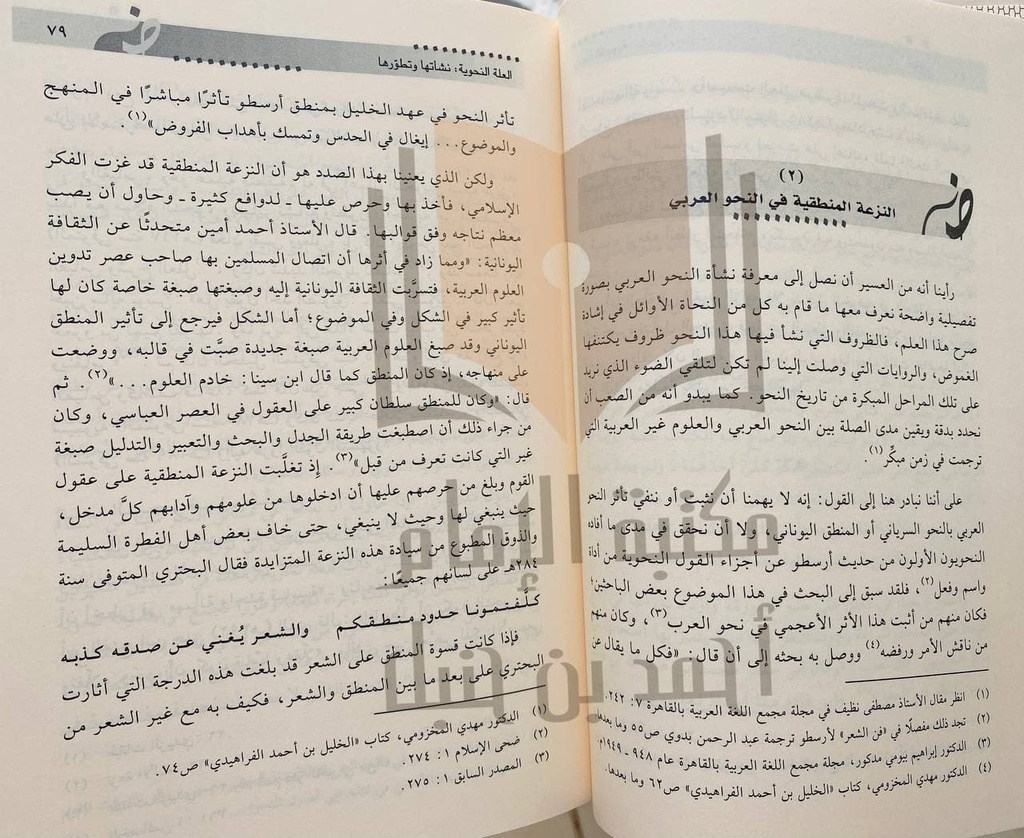 (٢)
النزعة المنطقية في النحو العربي
رأينا أنه من العسير أن نصل إلى معرفة نشأة النحو العربي بصورة
تفصيلية واضحة نعرف معها ما قام به كل من النحاة الأوائل في إشادة
صرح هذا العلم، فالظروف التي نشأ فيها هذا النحو ظروف يكتنفها
الغموض، والروايات التي وصلت إلينا لم تكن لتلقي الضوء الذي نريد
على تلك المراحل المبكرة من تاريخ النحو. كما يبدو أنه من الصعب أن
نحدد بدقة ويقين مدى الصلة بين النحو العربي والعلوم غير العربية التي
ترجمت في زمن مبكّر(١).
على أننا نبادر هنا إلى القول: إنه لا يهمنا أن نثبت أو ننفي تأثر النحو
العربي بالنحو السرياني أو المنطق اليوناني، ولا أن نحقق في مدى ما أفاده
النحويون الأولون من حديث أرسطو عن أجزاء القول النحوية من أداة
واسم وفعل(٢)، فلقد سبق إلى البحث في هذا الموضوع بعض الباحثين؛
فكان منهم من أثبت هذا الأثر الأعجمي في نحو العرب(٣)، وكان منهم
من ناقش الأمر ورفضه(٤) ووصل به بحثه إلى أن قال: «فكل ما يقال عن
(١) انظر مقال الأستاذ مصطفى نظيف في مجلة مجمع اللغة العربية بالقاهرة ٧: ٢٤٢.
(٢) تجد ذلك مفصلًا في «فن الشعر» لأرسطو ترجمة عبد الرحمن بدوي ص٥٥ وما بعدها.
(٣) الدكتور إبراهيم بيومي مدكور، مجلة مجمع اللغة العربية بالقاهرة عام ٩٤٨ـ١٩٤٩م.
(٤) الدكتور مهدي المخزومي، كتاب «الخليل بن أحمد الفراهيدي» ص٦٢ وما بعدها.
العلة النحوية: نشأتها وتطوّرها
٧٩
تأثر النحو في عهد الخليل بمنطق أرسطو تأثرًا مباشرًا في المنهج
والموضوع... إيغال في الحدس وتمسك بأهداب الفروض»(١).
ولكن الذي يعنينا بهذا الصدد هو أن النزعة المنطقية قد غزت الفكر
الإسلامي، فأخذ بها وحرص عليها ـ لدوافع كثيرة ـ وحاول أن يصب
معظم نتاجه وفق قوالبها. قال الأستاذ أحمد أمين متحدثًا عن الثقافة
اليونانية: «ومما زاد في أثرها أن اتصال المسلمين بها صاحب عصر تدوين
العلوم العربية، فتسرَّبت الثقافة اليونانية إليه وصبغتها صبغة خاصة كان لها
تأثير كبير في الشكل وفي الموضوع؛ أما الشكل فيرجع إلى تأثير المنطق
اليوناني وقد صبغ العلوم العربية صبغة جديدة صبَّت في قالبه، ووضعت
على منهاجه، إذ كان المنطق كما قال ابن سينا: خادم العلوم...»(٢). ثم
قال: «وكان للمنطق سلطان كبير على العقول في العصر العباسي، وكان
من جراء ذلك أن اصطبغت طريقة الجدل والبحث والتعبير والتدليل صبغة
غير التي كانت تعرف من قبل»(٣). إذ تغلَّبت النزعة المنطقية على عقول
القوم وبلغ من حرصهم عليها أن ادخلوها من علومهم وآدابهم كلَّ مدخل،
حيث ينبغي لها وحيث لا ينبغي، حتى خاف بعض أهل الفطرة السليمة
والذوق المطبوع من سيادة هذه النزعة المتزايدة فقال البحتري المتوفى سنة
٢٨٤هـ على لسانهم جميعًا:
كلّفتمونا حدود منطقكم والشعر يُغني عن صدقه كذبه
فإذا كانت قسوة المنطق على الشعر قد بلغت هذه الدرجة التي أثارت
البحتري على بعد ما بين المنطق والشعر، فكيف به مع غير الشعر من
(١) الدكتور مهدي المخزومي، كتاب «الخليل بن أحمد الفراهيدي» ص٧٤.
(٢) ضحى الإسلام ١: ٢٧٤.
(٣) المصدر السابق ١: ٢٧٥.
مكتبة الإمام
أحمد بن حنبل